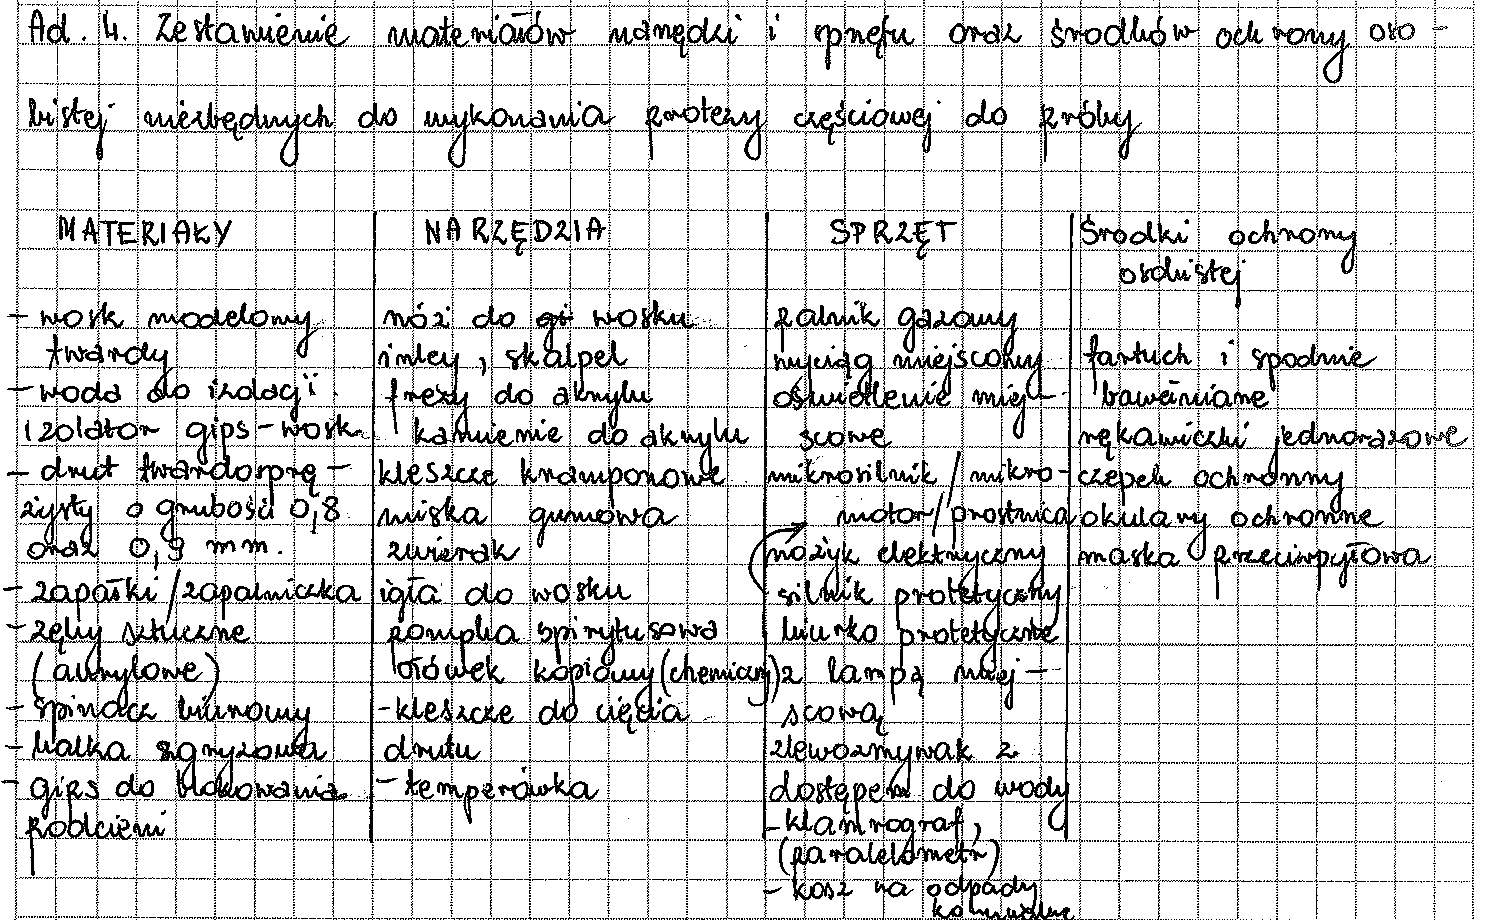 Ad. 4. Zestawienie materiałów narzędzi i sprzętu oraz środków ochrony oso-
bistej niezbędnych do wykonania protezy częściowej do próby
MATERIAŁY
- wosk modelowy
twardy
- woda do izolacji
izolator gips-wosk
- drut twardosprę-
żysty o grubości 0,8
oraz 0,9 mm.
- zapałki/zapalniczka
- zęby sztuczne
(akrylowe)
- spinacz biurowy
- kalka zgryzowa
- gips do blokowania
podcieni
NARZĘDZIA
nóż do wosku
inley, skalpel
frezy do akrylu
kamienie do akrylu
kleszcze kramponowe
miska gumowa
zwierak
igła do wosku
lampka spirytusowa
ołówek kopiowy (chemiczny)
- kleszcze do cięcia
drutu
- temperówka
SPRZĘT
palnik gazowy
wyciąg miejscowy
oświetlenie miej-
scowe
mikrosilnik / mikro-
motor/prostnica
nożyk elektryczny
silnik protetyczny
biurko protetyczne
z lampą miej-
scową
zlewozmywak z
dostępem do wody
- klamrograf,
(paralelometr)
- kosz na odpady
komunalne
Środki ochrony
osobistej
fartuch i spodnie
bawełniane
rękawiczki jednorazowe
czepek ochronny
okulary ochronne
maska przeciwpyłowa